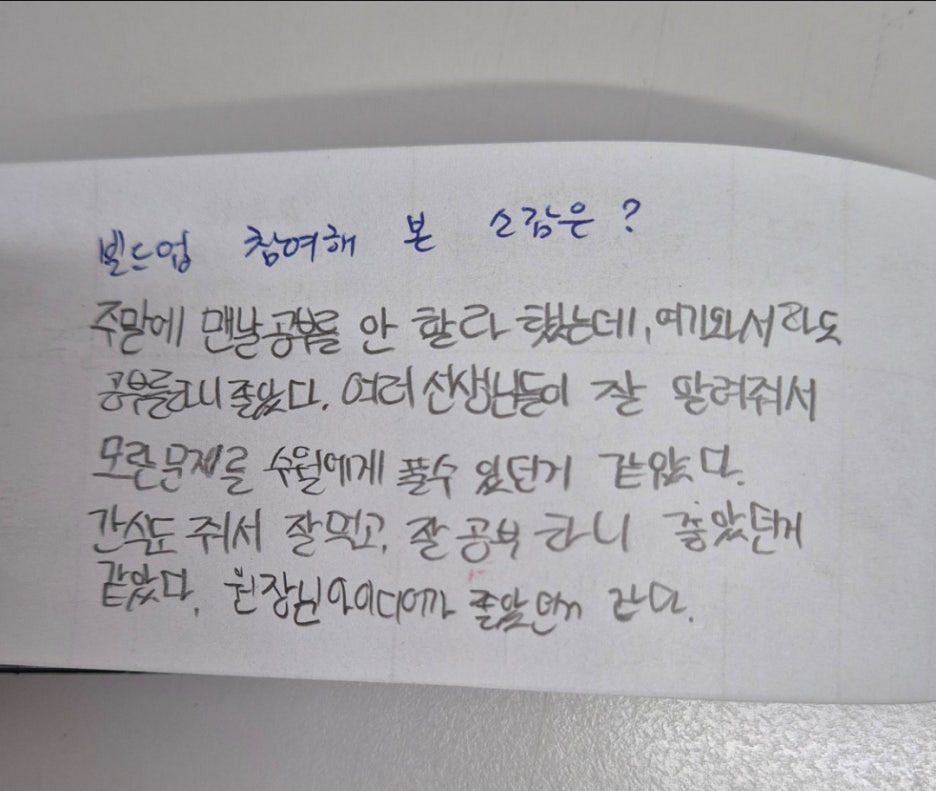 빌드업 참여해 본 소감은?
주말에 맨날 공부를 안 할라 했는데, 여기와서라도
공부를하니 좋았다. 여러 선생님들이 잘 알려줘서
모른문제를 수월에게 풀수 있던거 같았다.
간식도 줘서 잘먹고, 잘 공부 하니 좋았던거
같았다. 원장님아이디어가 좋았던거 같다.